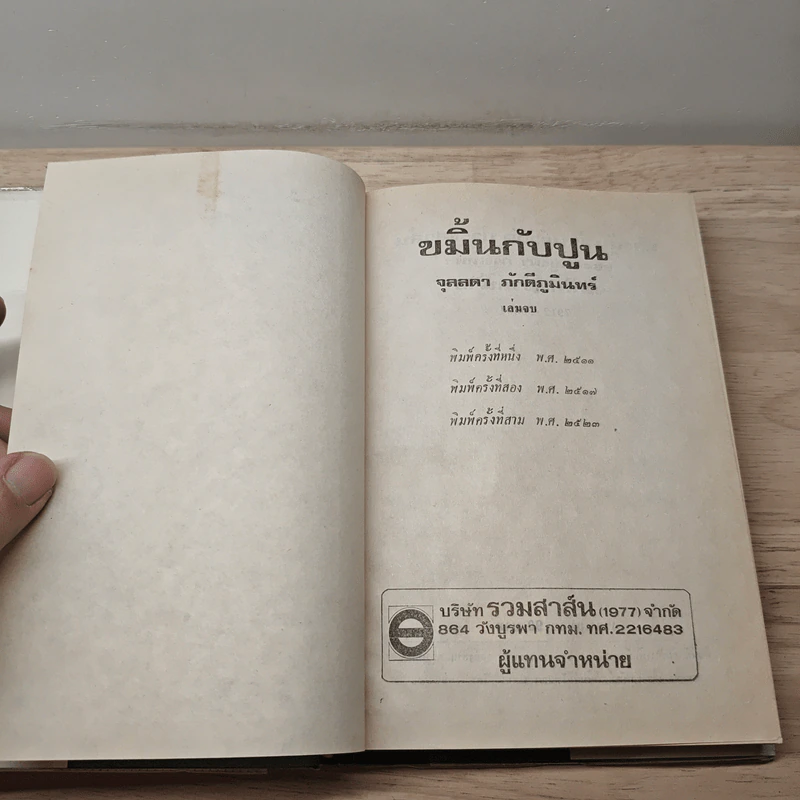 ขมิ้นกับปูน
จุลลดา ภักดีภูมินทร์
เล่มจบ
พิมพ์ครั้งที่หนึ่ง พ.ศ. ๒๕๑๑
พิมพ์ครั้งที่สอง พ.ศ. ๒๕๑๗
พิมพ์ครั้งที่สาม พ.ศ. ๒๕๒๓
บริษัท รวมสาส์น (1977) จำกัด
864 วังบูรพา กทม. ทศ. 2216483
ผู้แทนจำหน่าย